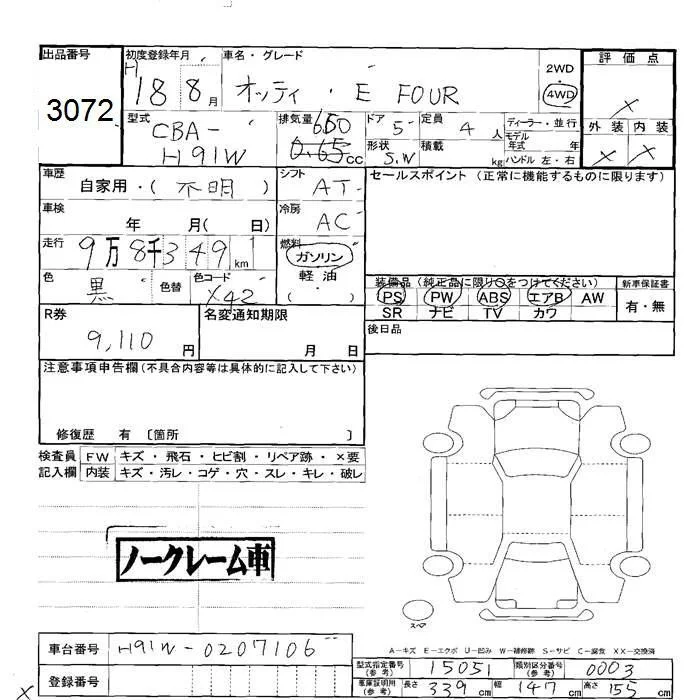 出品番号
3072
初度登録年月
H 18 8月
車名・グレード
オッティ・E FOUR
2WD
4WD
評価点
X
外装 内装
X X
型式
CBA-
H91W
排気量
660
0.65cc
ドア 5
定員 4人
ディーラー・並行
モデル
年式 年
形状 S.W
積載 kg
ハンドル 左・右
車歴
自家用・(不明)
シフト AT
セールスポイント (正常に機能するものに限ります)
車検
年 月(日)
冷房 AC
走行
9万8千349km
燃料
ガソリン
軽油
( )
色
黒
色替
色コード
X42
装備品 (純正品に限り○をつけてください)
新車保証書
PS PW ABS エアB AW
SR ナビ TV カワ
有・無
R券
9,110円
名変通知期限
月 日
後日品
注意事項申告欄(不具合内容等は具体的に記入して下さい)
修復歴 有 〔箇所 〕
検査員
記入欄
FW キズ・飛石・ヒビ割・リペア跡・X要
内装 キズ・汚レ・コゲ・穴・スレ・キレ・破レ
ノークレーム車
スペア
A-キズ E-エクボ U-凹み W-補修跡 S-サビ C-腐食 XX-交換済
車台番号 H91W-0207106
登録番号
X
型式指定番号(参考) 15051
類別区分番号(参考) 0003
車庫証明用(参考) 長さ 339cm 幅 147cm 高さ 155cm